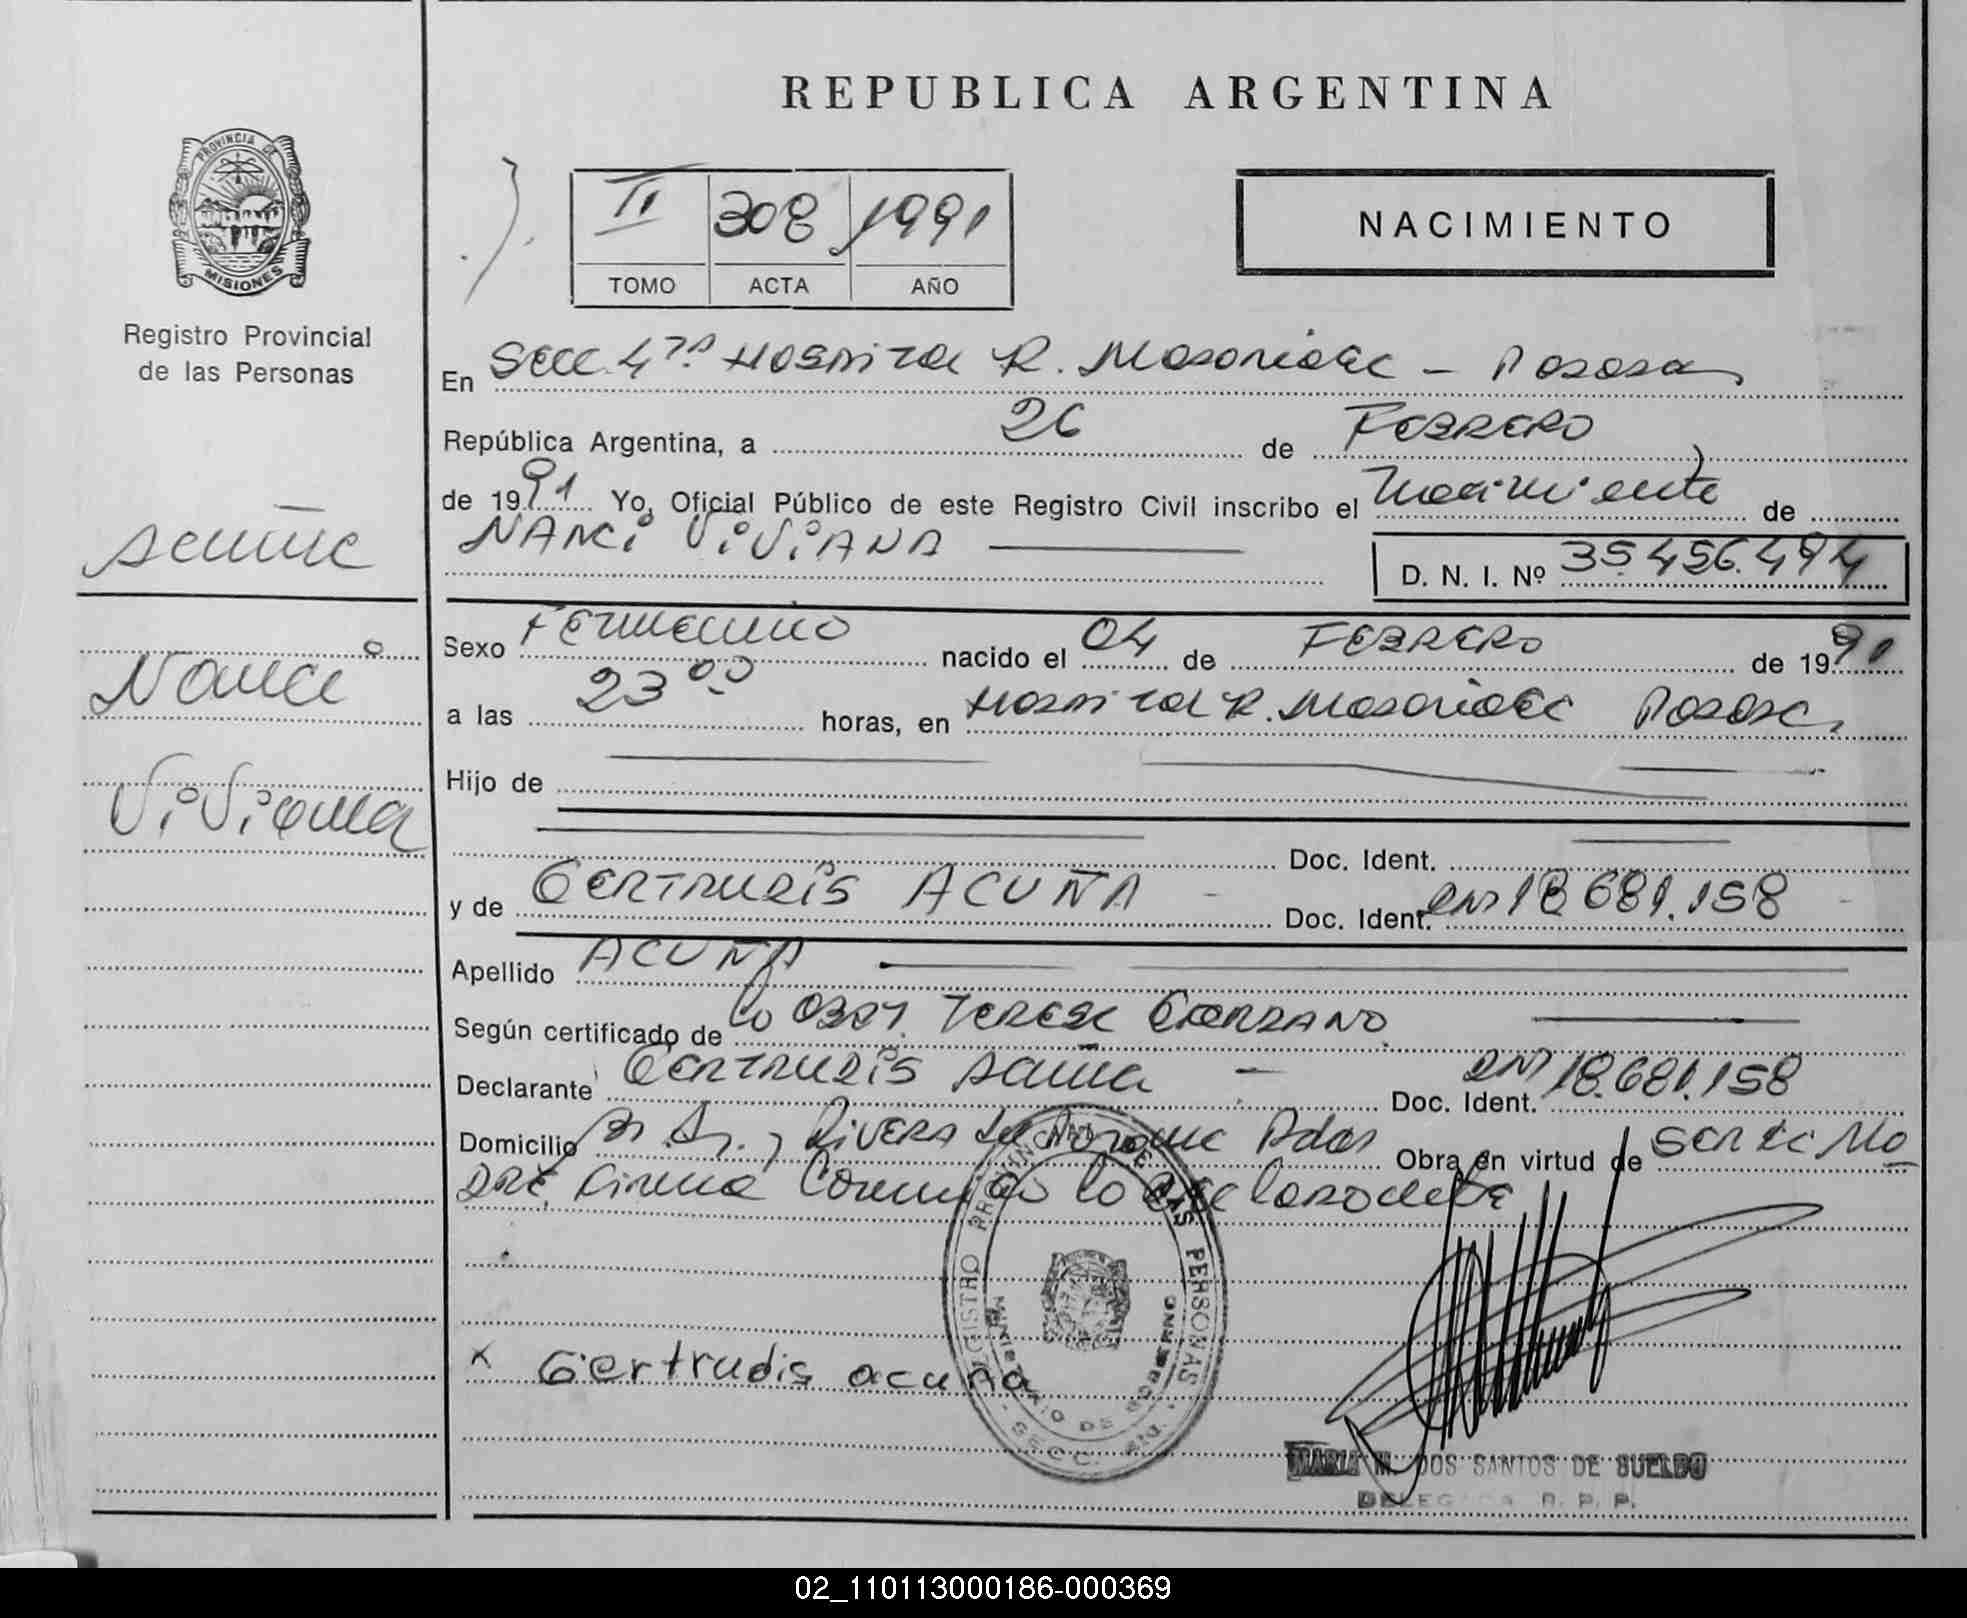 REPUBLICA ARGENTINA
PROVINCIA DE
MISIONES
Registro Provincial
de las Personas
II 308 1991
TOMO ACTA AÑO
NACIMIENTO
En Secc 4ta Hospital R. Madariaga - Posadas
República Argentina, a 26 de FEBRERO
de 1991 Yo, Oficial Público de este Registro Civil inscribo el Nacimiento de
NANCI ViViANA
D. N. I. Nº 35.456.494
Acuña
Nanci
ViViana
Sexo Femenino nacido el 04 de FEBRERO de 1991
a las 23 00 horas, en Hospital R. Madariaga Posadas
Hijo de
Doc. Ident.
y de GERTRUDIS ACUÑA - Doc. Ident. DNI 18.681.158 -
Apellido ACUÑA
Según certificado de la Obst. TERESA
Declarante GERTRUDIS Acuña - Doc. Ident. DNI 18.681.158
Domicilio RIVERA Pdas Obra en virtud de SER la Ma
DRE. Firma la declarante
x Gertrudis acuña
REGISTRO PROVINCIAL DE LAS PERSONAS
MINISTERIO DE GOBIERNO
SECC. 4ta.
MARIA M. DOS SANTOS DE SUELDO
DELEGADA R. P. P.
02_110113000186-000369